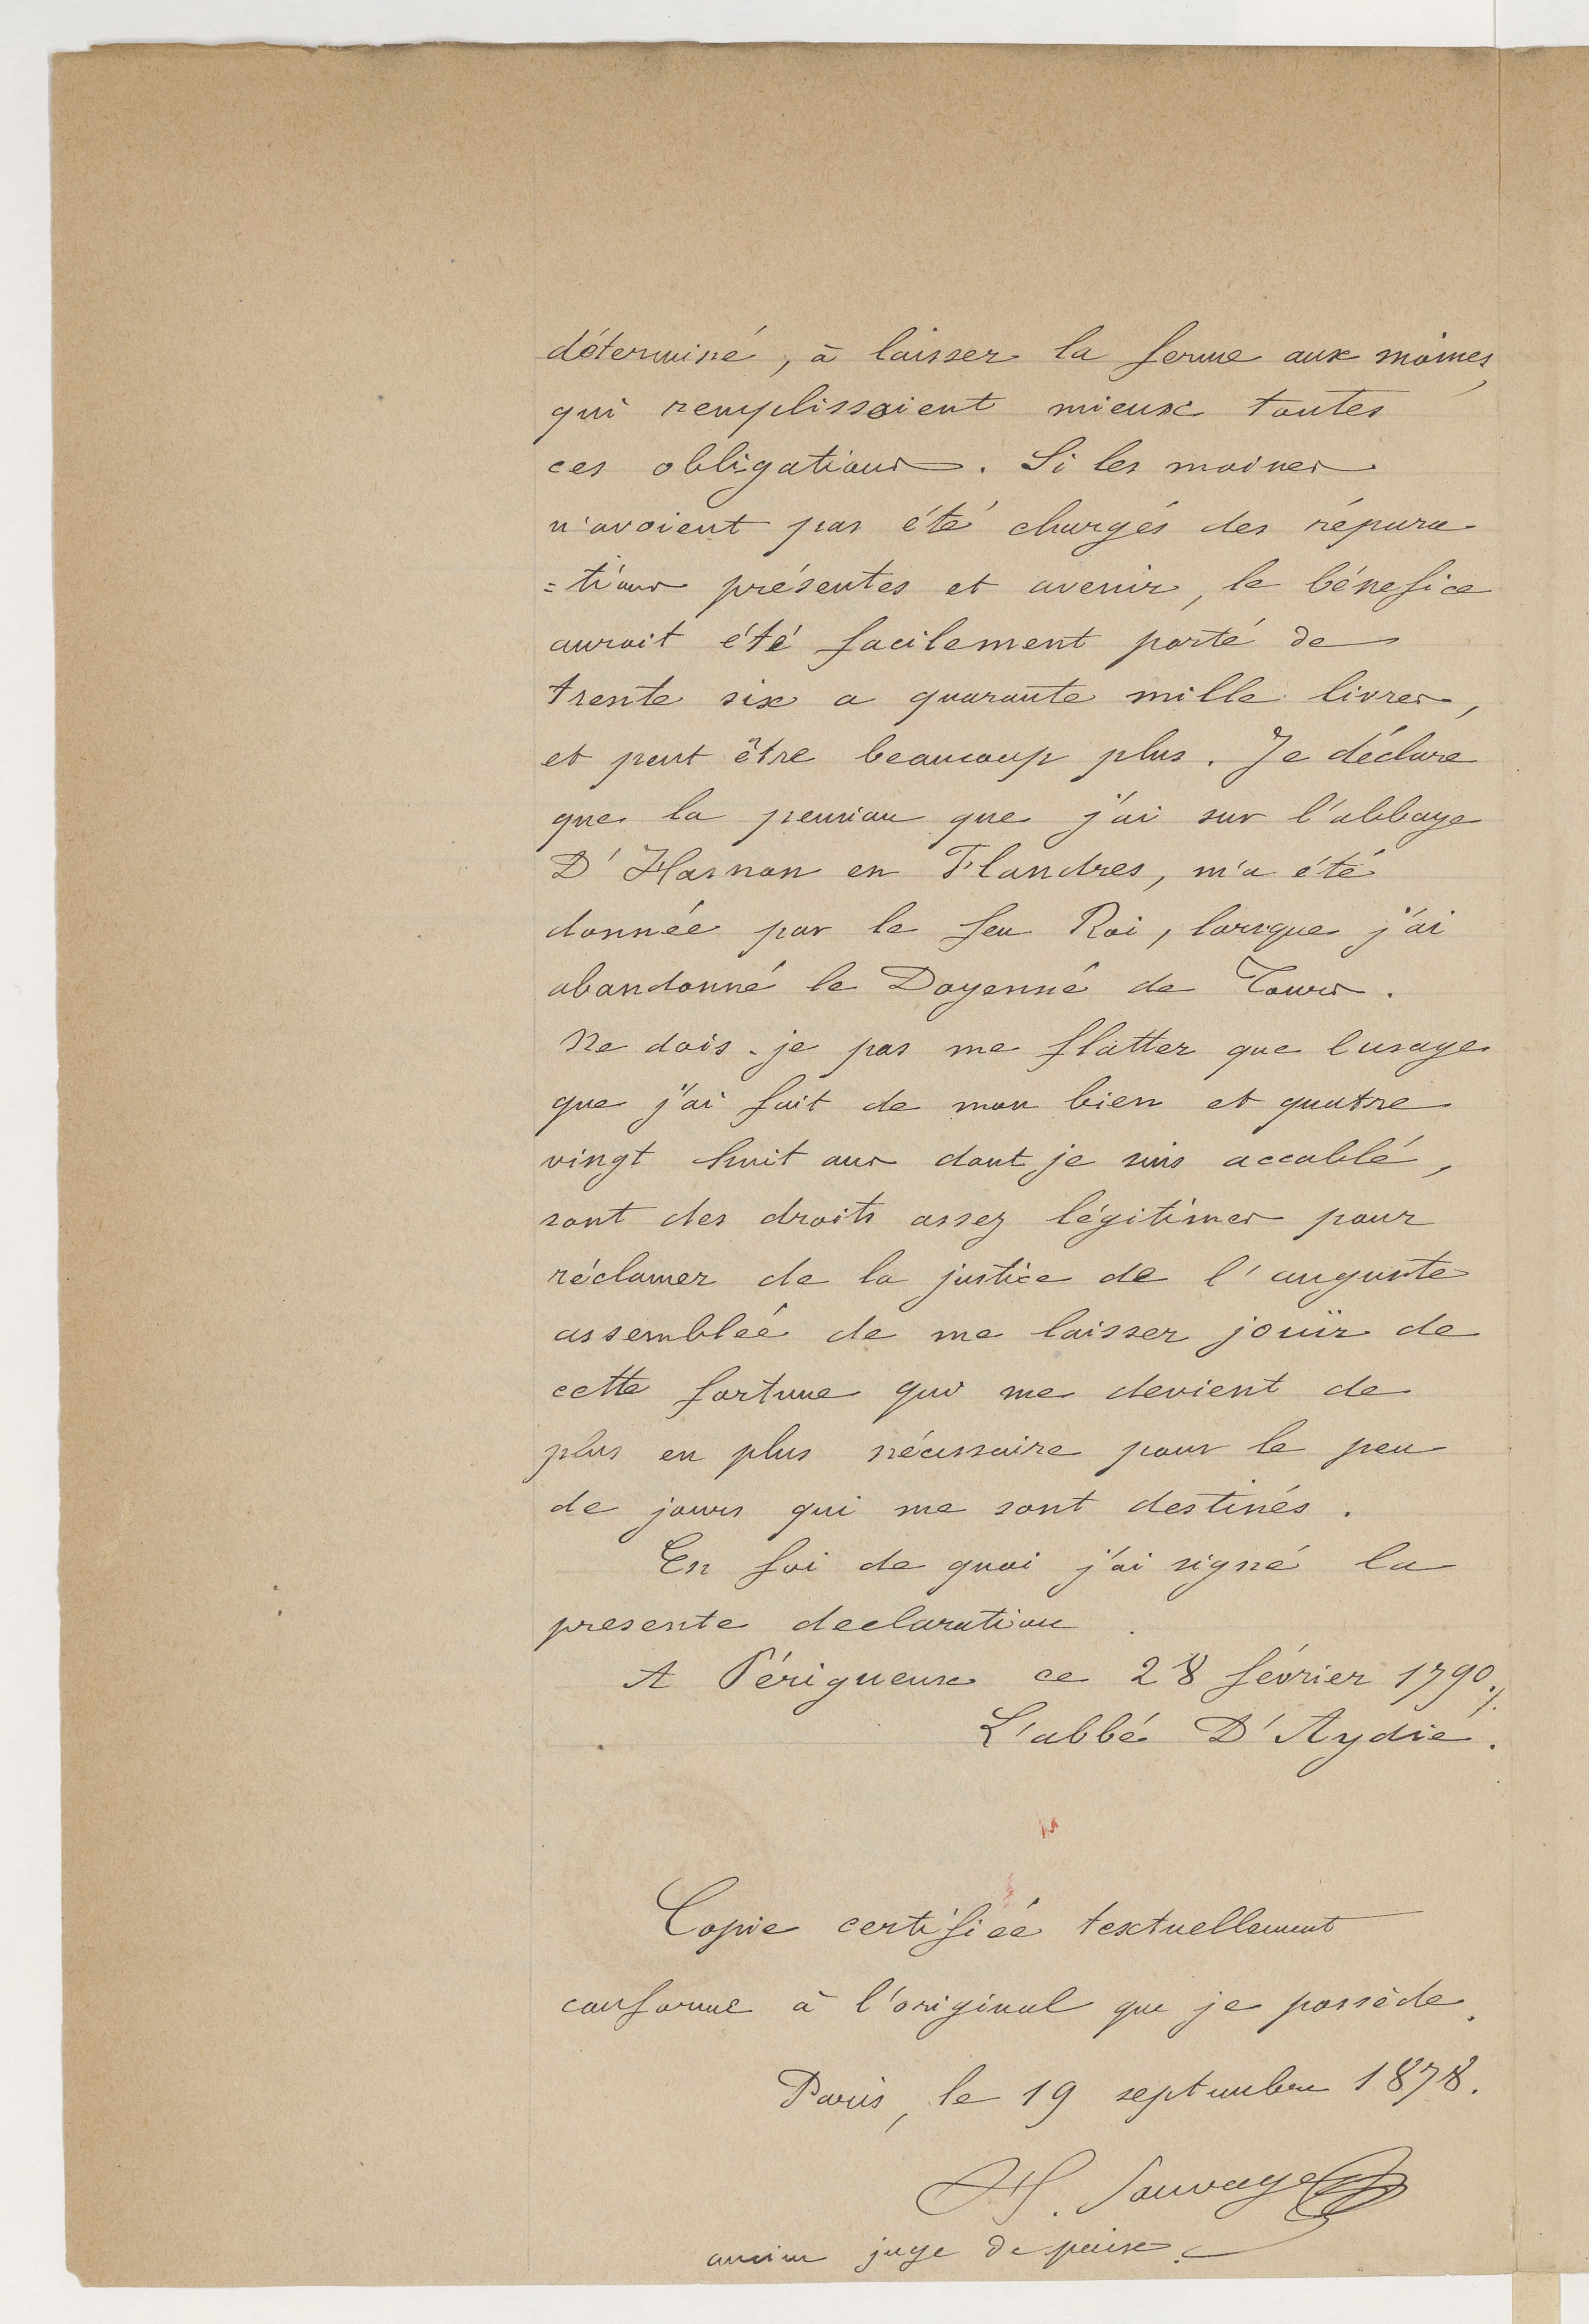 déterminé, à laisser la ferme aux moines,
qui remplissoient mieux toutes
ces obligations. Si les moines
n'avoient pas été chargés des répara
=tions présentes et avenir, le bénefice
auroit été facilement porté de
trente six a quarante mille livres,
et peut être beaucoup plus. Je déclare
que la pension que j'ai sur l'abbaye
D'Hasnon en Flandres, m'a été
donnée par le feu Roi, lorsque j'ai
abandonné le Doyenné de Tours.
Ne dois-je pas me flatter que l'usage
que j'ai fait de mon bien et quatre
vingt huit ans dont je suis accablé,
sont des droits assez légitimes pour
réclamer de la justice de l'auguste
assemblée de me laisser jouïr de
cette fortune qui me devient de
plus en plus nécessaire pour le peu
de jours qui me sont destinés.
En foi de quoi j'ai signé la
presente declaration.
A Périgueux ce 28 février 1790 ./.
L'abbé D'Aydié.
Copie certifiée textuellement
conforme à l'original que je possède.
Paris, le 19 septembre 1878.
H. Sauvage
ancien juge de paix.